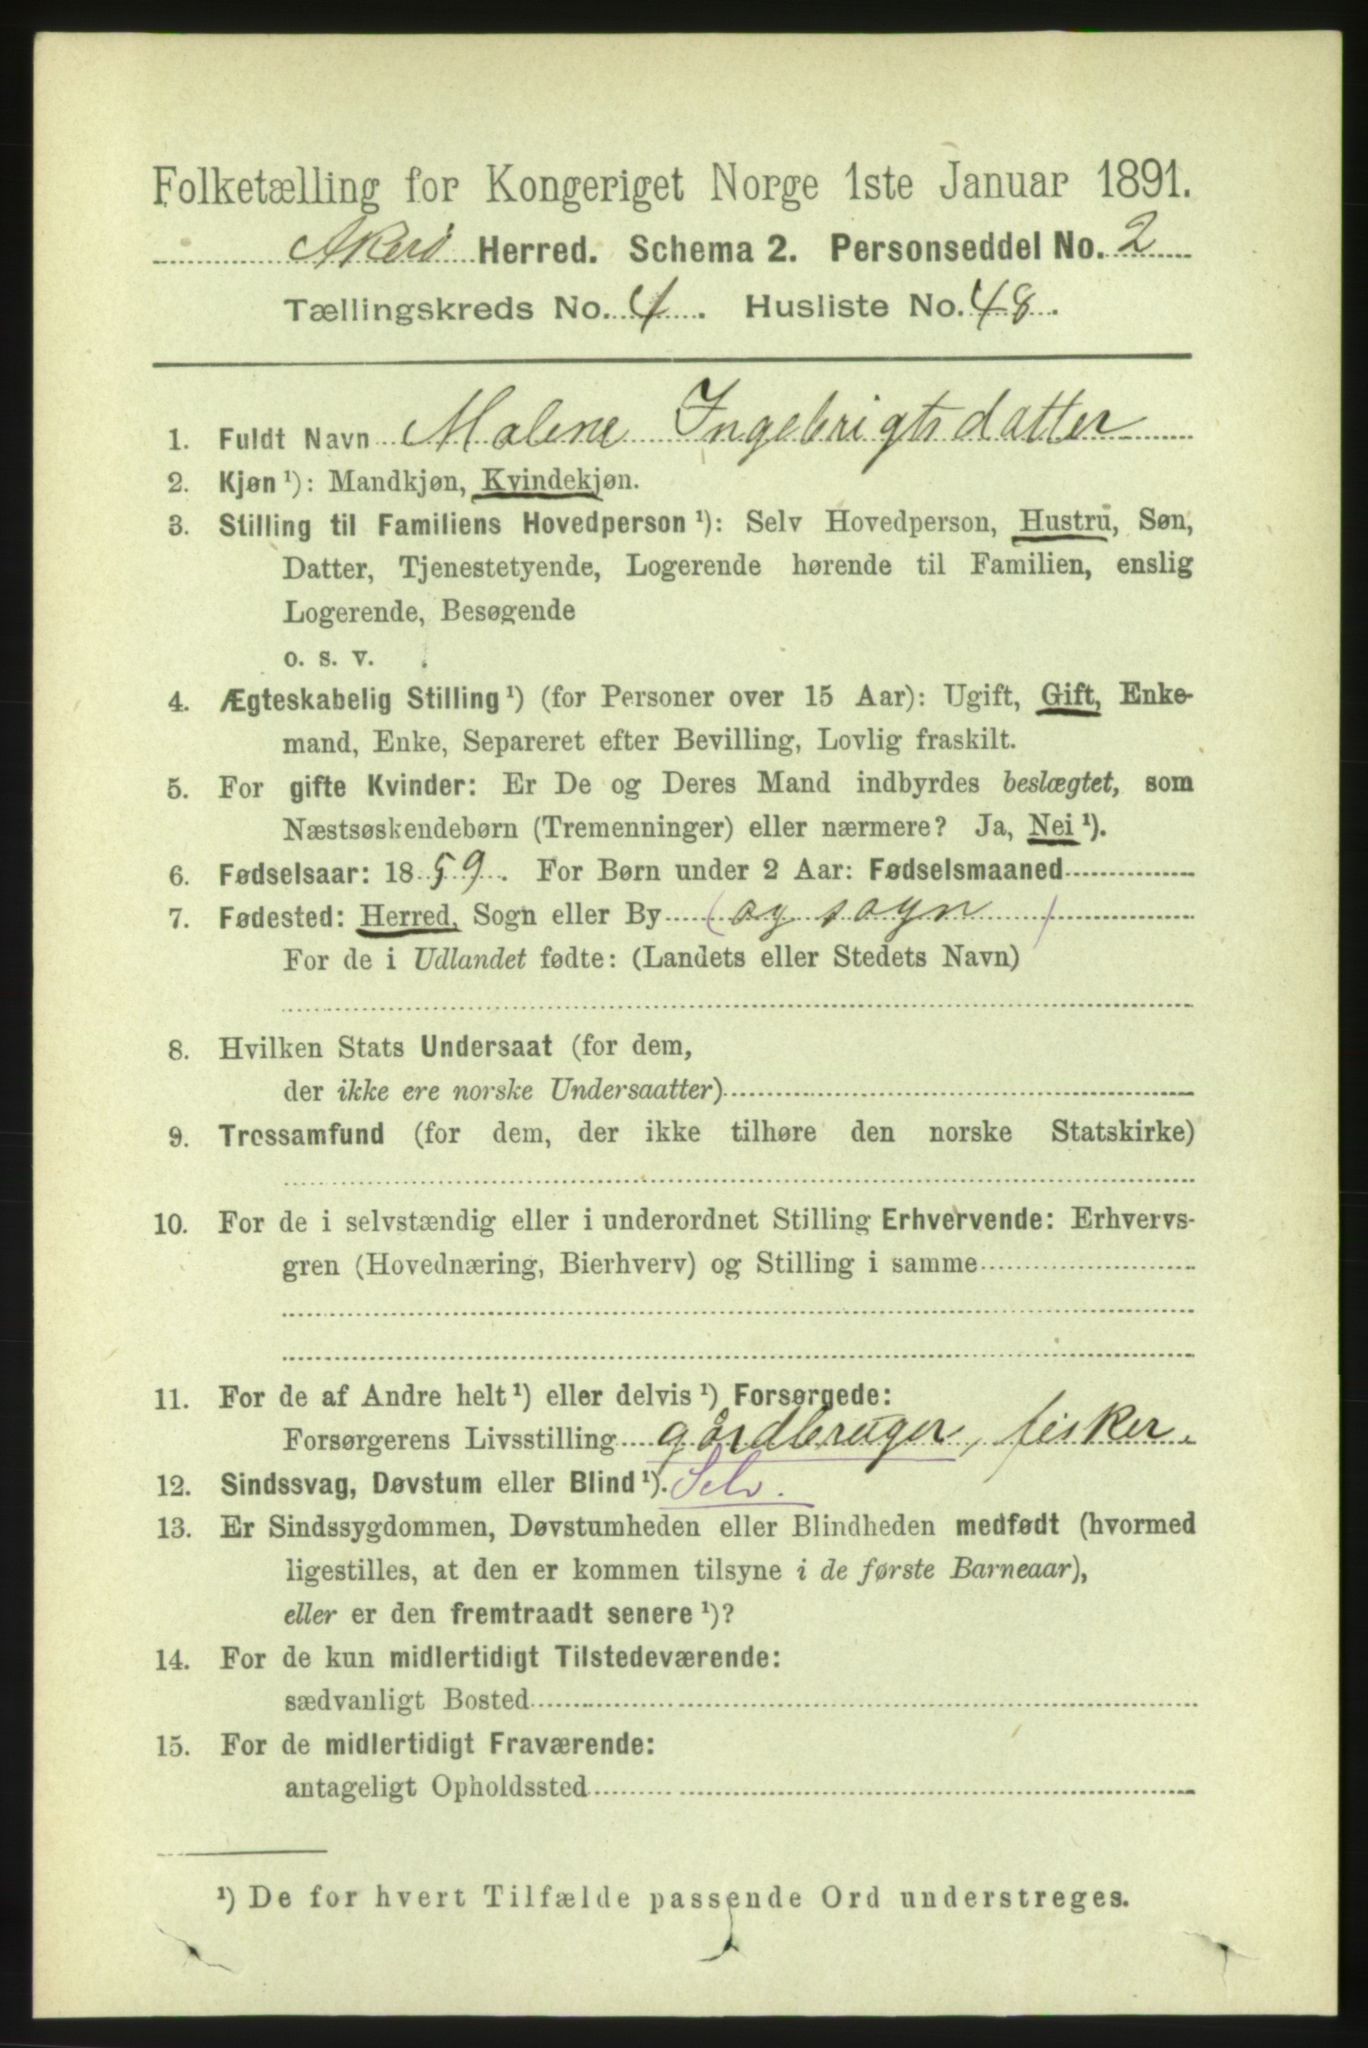 Folketælling for Kongeriget Norge 1ste Januar 1891.
Akerø Herred. Schema 2. Personseddel No. 2
Tællingskreds No. 4. Husliste No. 48.
1. Fuldt Navn Malene Ingebrigtsdatter
2. Kjøn ¹): Mandkjøn, Kvindekjøn.
3. Stilling til Familiens Hovedperson ¹): Selv Hovedperson, Hustru, Søn,
Datter, Tjenestetyende, Logerende hørende til Familien, enslig
Logerende, Besøgende
o. s. v.
4. Ægteskabelig Stilling ¹) (for Personer over 15 Aar): Ugift, Gift, Enke-
mand, Enke, Separeret efter Bevilling, Lovlig fraskilt.
5. For gifte Kvinder: Er De og Deres Mand indbyrdes beslægtet, som
Næstsøskendebørn (Tremenninger) eller nærmere? Ja, Nei ¹).
6. Fødselsaar: 1859. For Børn under 2 Aar: Fødselsmaaned
7. Fødested: Herred, Sogn eller By (og sogn)
For de i Udlandet fødte: (Landets eller Stedets Navn)
8. Hvilken Stats Undersaat (for dem,
der ikke ere norske Undersaatter)
9. Trossamfund (for dem, der ikke tilhøre den norske Statskirke)
10. For de i selvstændig eller i underordnet Stilling Erhvervende: Erhvervs-
gren (Hovednæring, Bierhverv) og Stilling i samme
11. For de af Andre helt ¹) eller delvis ¹) Forsørgede:
Forsørgerens Livsstilling gårdbruger, fisker.
12. Sindssvag, Døvstum eller Blind ¹). Selv.
13. Er Sindssygdommen, Døvstumheden eller Blindheden medfødt (hvormed
ligestilles, at den er kommen tilsyne i de første Barneaar),
eller er den fremtraadt senere ¹)?
14. For de kun midlertidigt Tilstedeværende:
sædvanligt Bosted
15. For de midlertidigt Fraværende:
antageligt Opholdssted
¹) De for hvert Tilfælde passende Ord understreges.